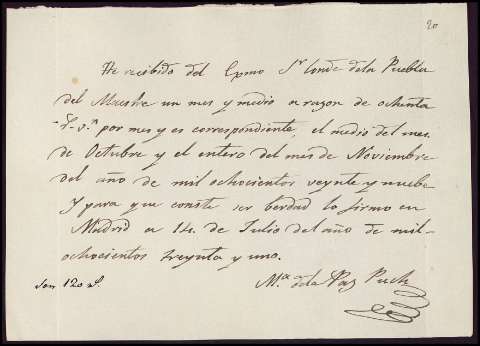 20
He recibido del Exmo Sr Conde dela Puebla
del Maestre un mes y medio a razon de ochenta
rs. vn por mes y es correspondiente, el medio del mes
de Octubre y el entero del mes de Noviembre
del año de mil ochocientos veynte y nuebe
Y para que conste ser berdad lo firmo en
Madrid a 14. de Julio del año de mil
ochocientos treynta y uno.
Ma. dela Paz Puch
Son 120 rs.